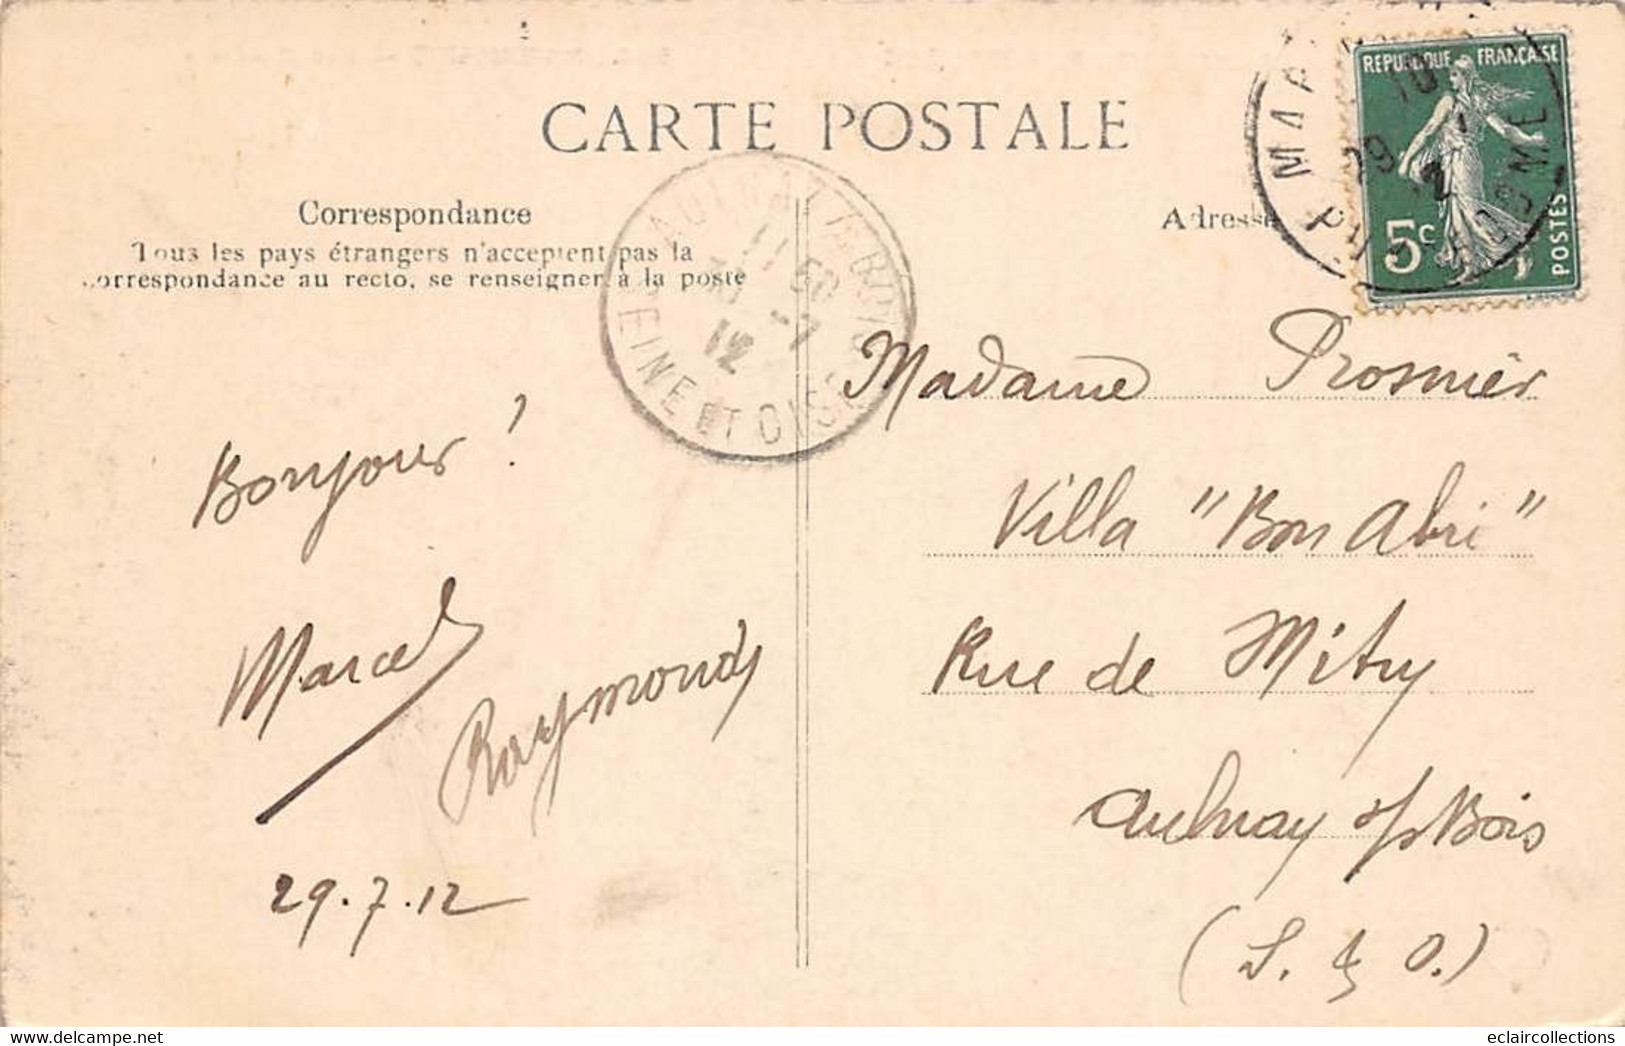 CARTE POSTALE
Correspondance
Tous les pays étrangers n'acceptent pas la
correspondance au recto, se renseigner à la poste
Adresse
RÉPUBLIQUE FRANÇAISE
5c
POSTES
PUY DE DOME
29
AULNAY
BOIS
SEINE ET OISE
12
Bonjour !
Marcel
Raymonds
29.7.12
Madame Prosnier
Villa "Bon Abri"
Rue de Mitry
Aulnay s/s Bois
(S. & O.)
delcampe.net
eclaircollections